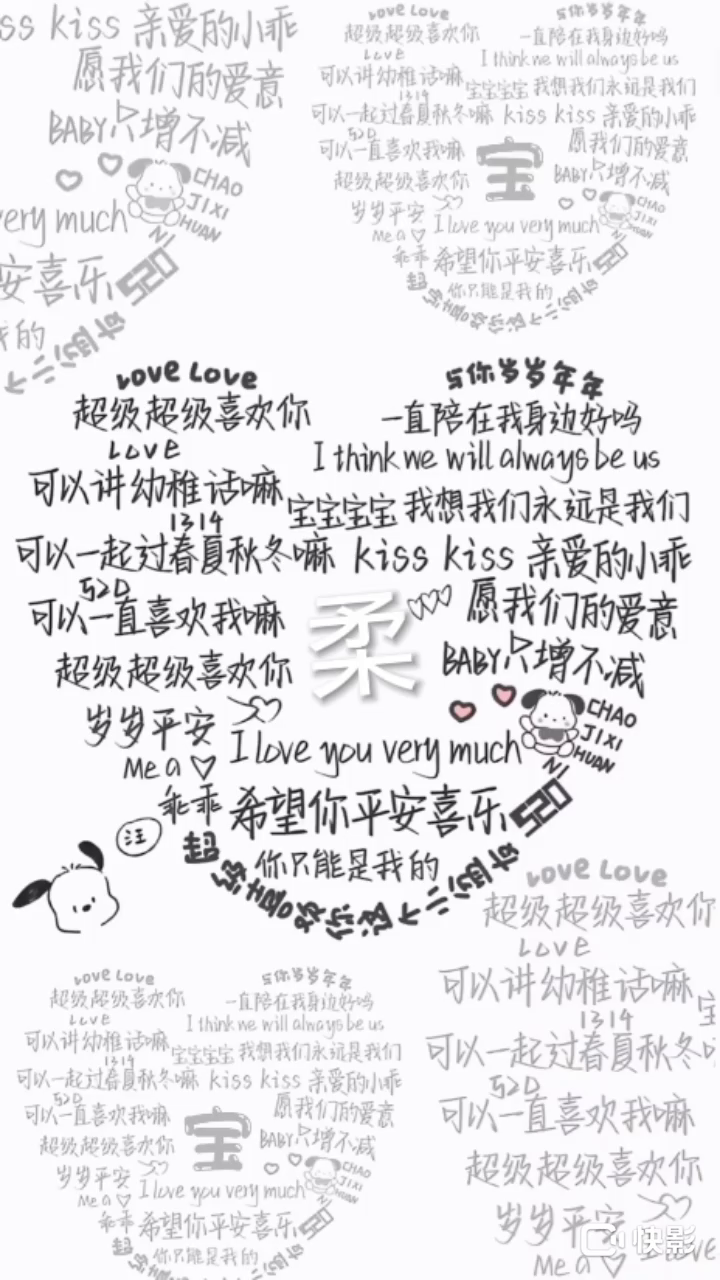 iss kiss 亲爱的小乖
愿我们的爱意
BABY只增不减
CHAO
JI XI
HUAN
NI
very much
安喜乐 520
我的
Love Love
超级超级喜欢你
Love
可以讲幼稚话嘛
1314
可以一起过春夏秋冬嘛
520
可以一直喜欢我嘛
超级超级喜欢你
岁岁平安
Me a ♡
乖乖
与你岁岁年年
一直陪在我身边好吗
I think we will always be us
宝宝宝宝 我想我们永远是我们
kiss kiss 亲爱的小乖
愿我们的爱意
BABY只增不减
宝
CHAO
JI XI
HUAN
NI
I love you very much
希望你平安喜乐 520
你只能是我的
Love Love
超级超级喜欢你
Love
可以讲幼稚话嘛
1314
可以一起过春夏秋冬嘛
520
可以一直喜欢我嘛
超级超级喜欢你
岁岁平安
Me a ♡
乖乖
与你岁岁年年
一直陪在我身边好吗
I think we will always be us
宝宝宝宝 我想我们永远是我们
kiss kiss 亲爱的小乖
愿我们的爱意
BABY只增不减
柔
CHAO
JI XI
HUAN
NI
I love you very much
希望你平安喜乐 520
你只能是我的
超
汪
Love Love
超级超级喜欢你
Love
可以讲幼稚话嘛
1314
可以一起过春夏秋冬嘛
520
可以一直喜欢我嘛
超级超级喜欢你
岁岁平安
Me a ♡
乖乖
与你岁岁年年
一直陪在我身边好吗
I think we will always be us
宝宝宝宝 我想我们永远是我们
kiss kiss 亲爱的小乖
愿我们的爱意
BABY只增不减
宝
CHAO
JI XI
HUAN
NI
I love you very much
希望你平安喜乐 520
你只能是我的
Love Love
超级超级喜欢你
Love
可以讲幼稚话嘛
宝
1314
可以一起过春夏秋冬
520
可以一直喜欢我嘛
超级超级喜欢你
岁岁平安
Me a ♡ I love
快影